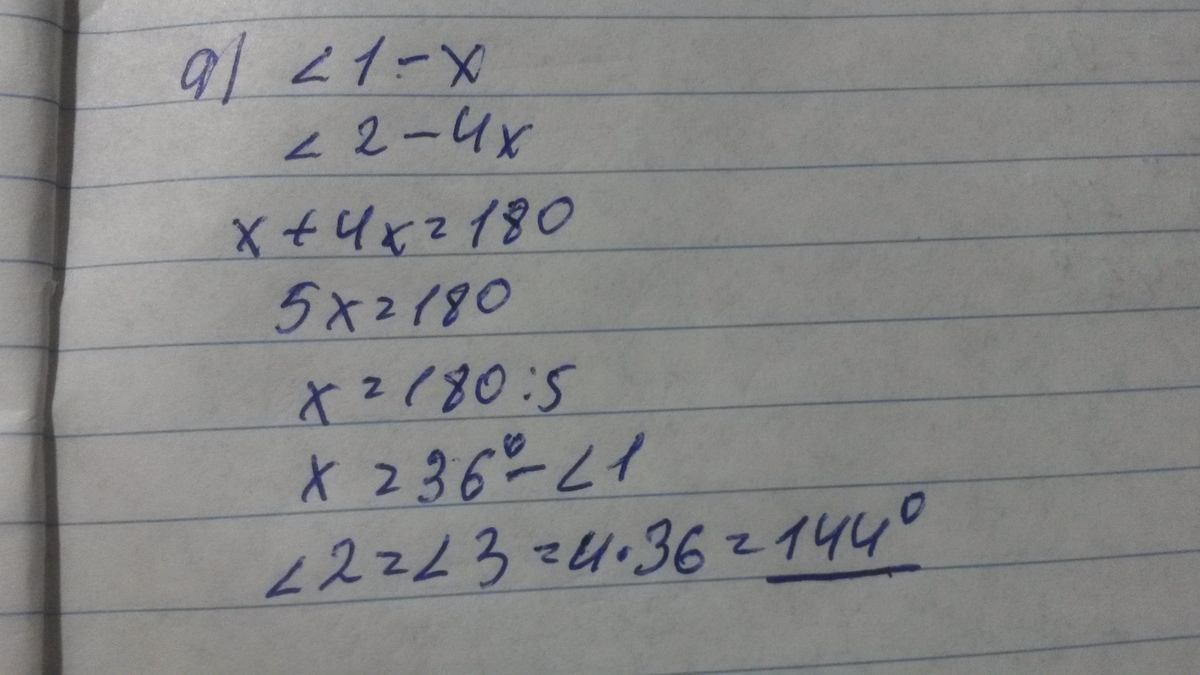 а) ∠1 - x
∠2 - 4x
x + 4x = 180
5x = 180
x = 180 : 5
x = 36° - ∠1
∠2 = ∠3 = 4·36 = 144°